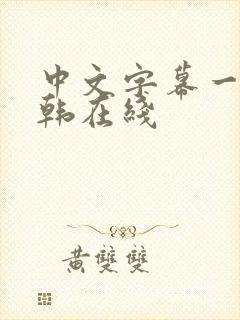 中文字幕一
韩在线
黄雙雙